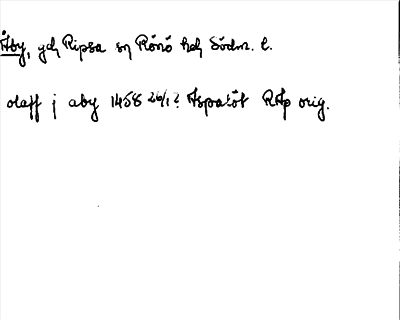 Åby, gd Ripsa sn Rönö hd Södm. l.
olaff j aby 1458 26/1? Aspatöt RAp orig.